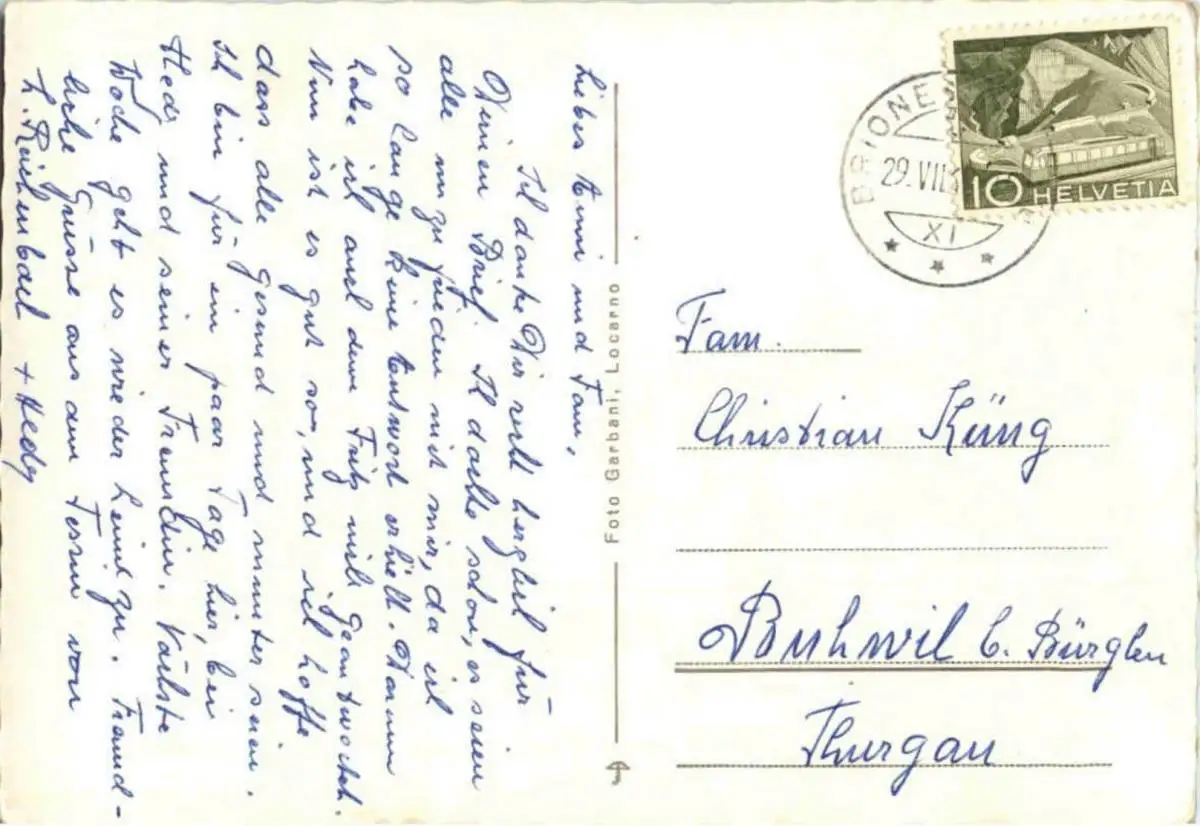 Liebes Anni und Fam,
Ich danke Dir recht herzlich für
Deinen Brief. Ich dachte schon, es seien
alle unzufrieden mit mir, da ich
so lange keine Antwort erhielt. Dann
habe ich auch dem Fritz nicht geantwortet.
Nun ist es gut so, und ich hoffe
dass alle gesund und munter seien.
Ich bin für ein paar Tage hier, bei
Hedi und seiner Freundin. Nächste
Woche geht es wieder heimzu. Freund-
liche Grüsse aus dem Tessin von
L. Reichenbach + Hedy
Foto Garbani, Locarno
BRIONE
29. VII.
XI
10 HELVETIA
Fam.
Christian Küng
Buhwil b. Bürglen
Thurgau